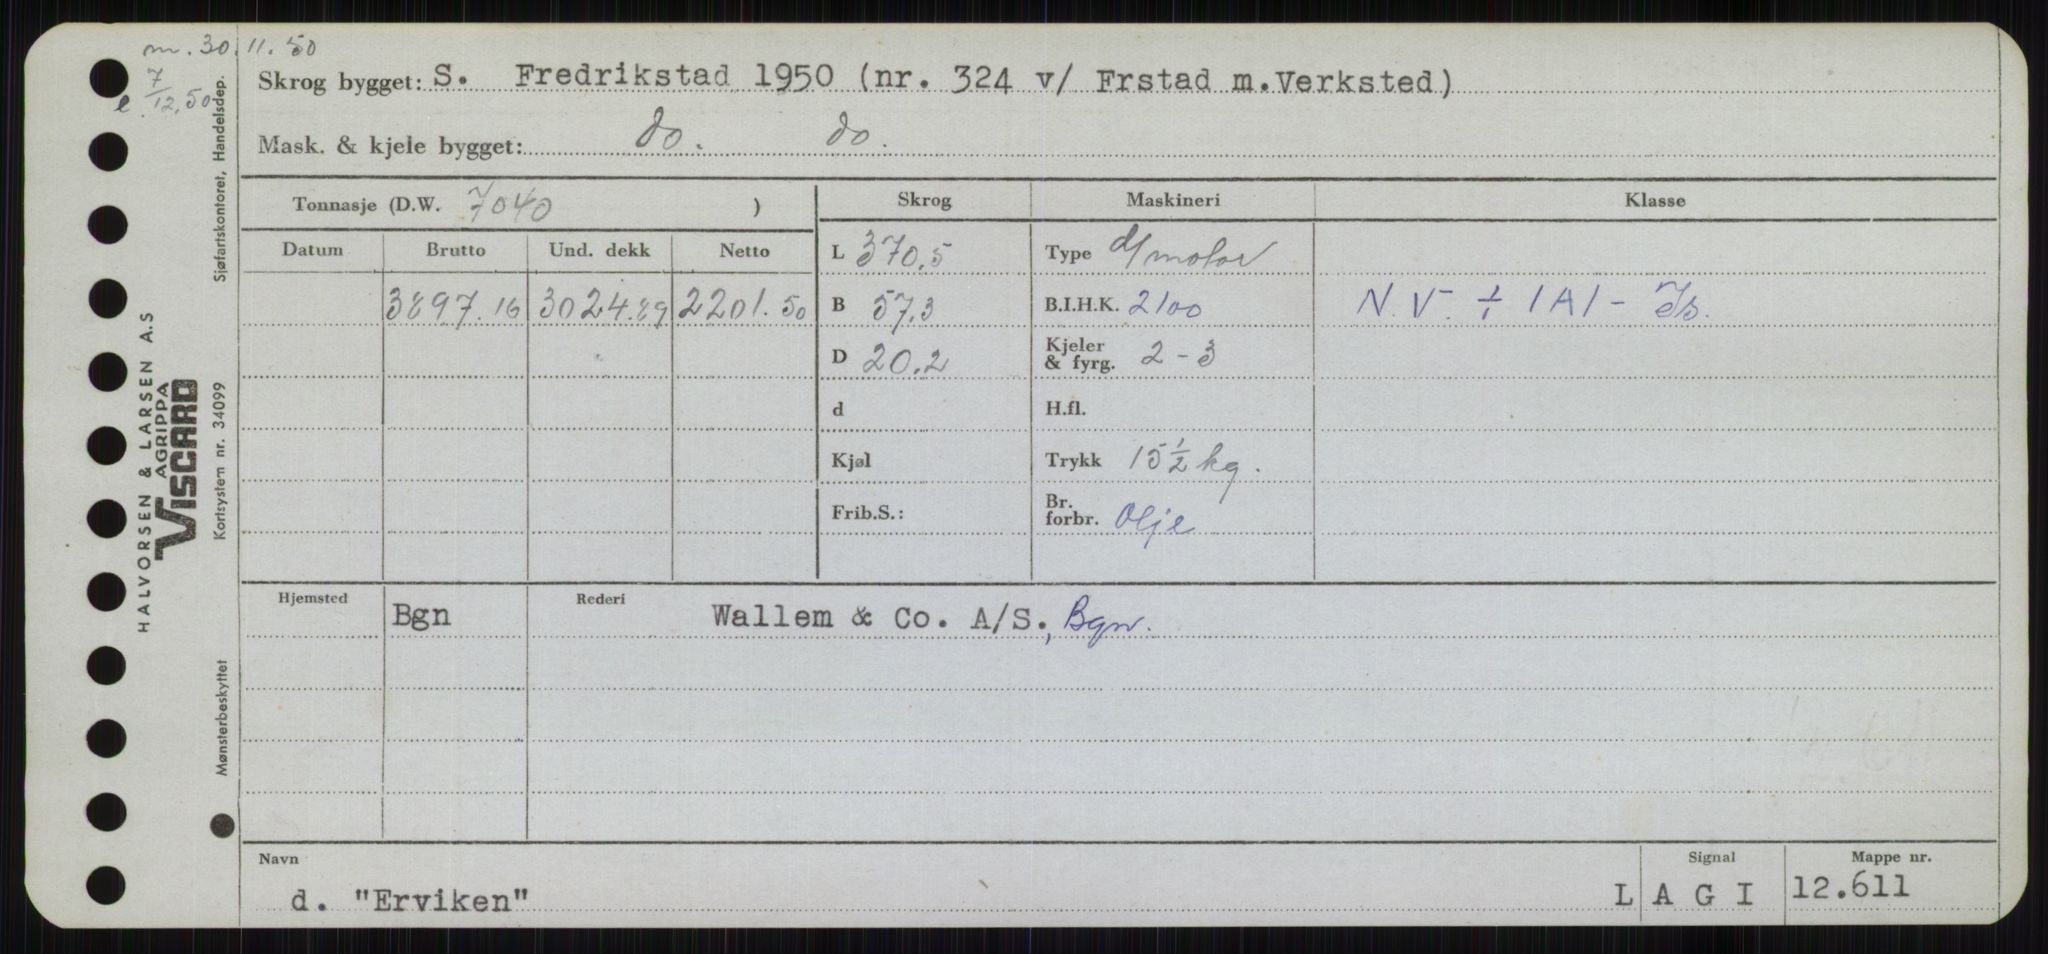 m. 30.11.50
e. 7/12.50
Skrog bygget: S. Fredrikstad 1950 (nr. 324 v/ Frstad m.Verksted)
Mask. & kjele bygget: do. do.
Tonnasje (D.W. 7040 )
Skrog Maskineri Klasse
Datum Brutto Und. dekk Netto
L 370,5 Type d/motor
3897.16 3024.89 2201.50 B 57,3 B.I.H.K. 2100 N.V. + 1A1 - Is.
D 20.2 Kjeler & fyrg. 2 - 3
d H.fl.
Kjøl Trykk 15 1/2 kg.
Frib.S.: Br. forbr. Olje
Hjemsted Bgn Rederi Wallem & Co. A/S., Bgn.
Navn Signal Mappe nr.
d. "Erviken" L A G I 12.611
Sjøfartskontoret, Handelsdep.
HALVORSEN & LARSEN A.S
AGRIPPA
VISCARD
Kortsystem nr. 34099
Mønsterbeskyttet